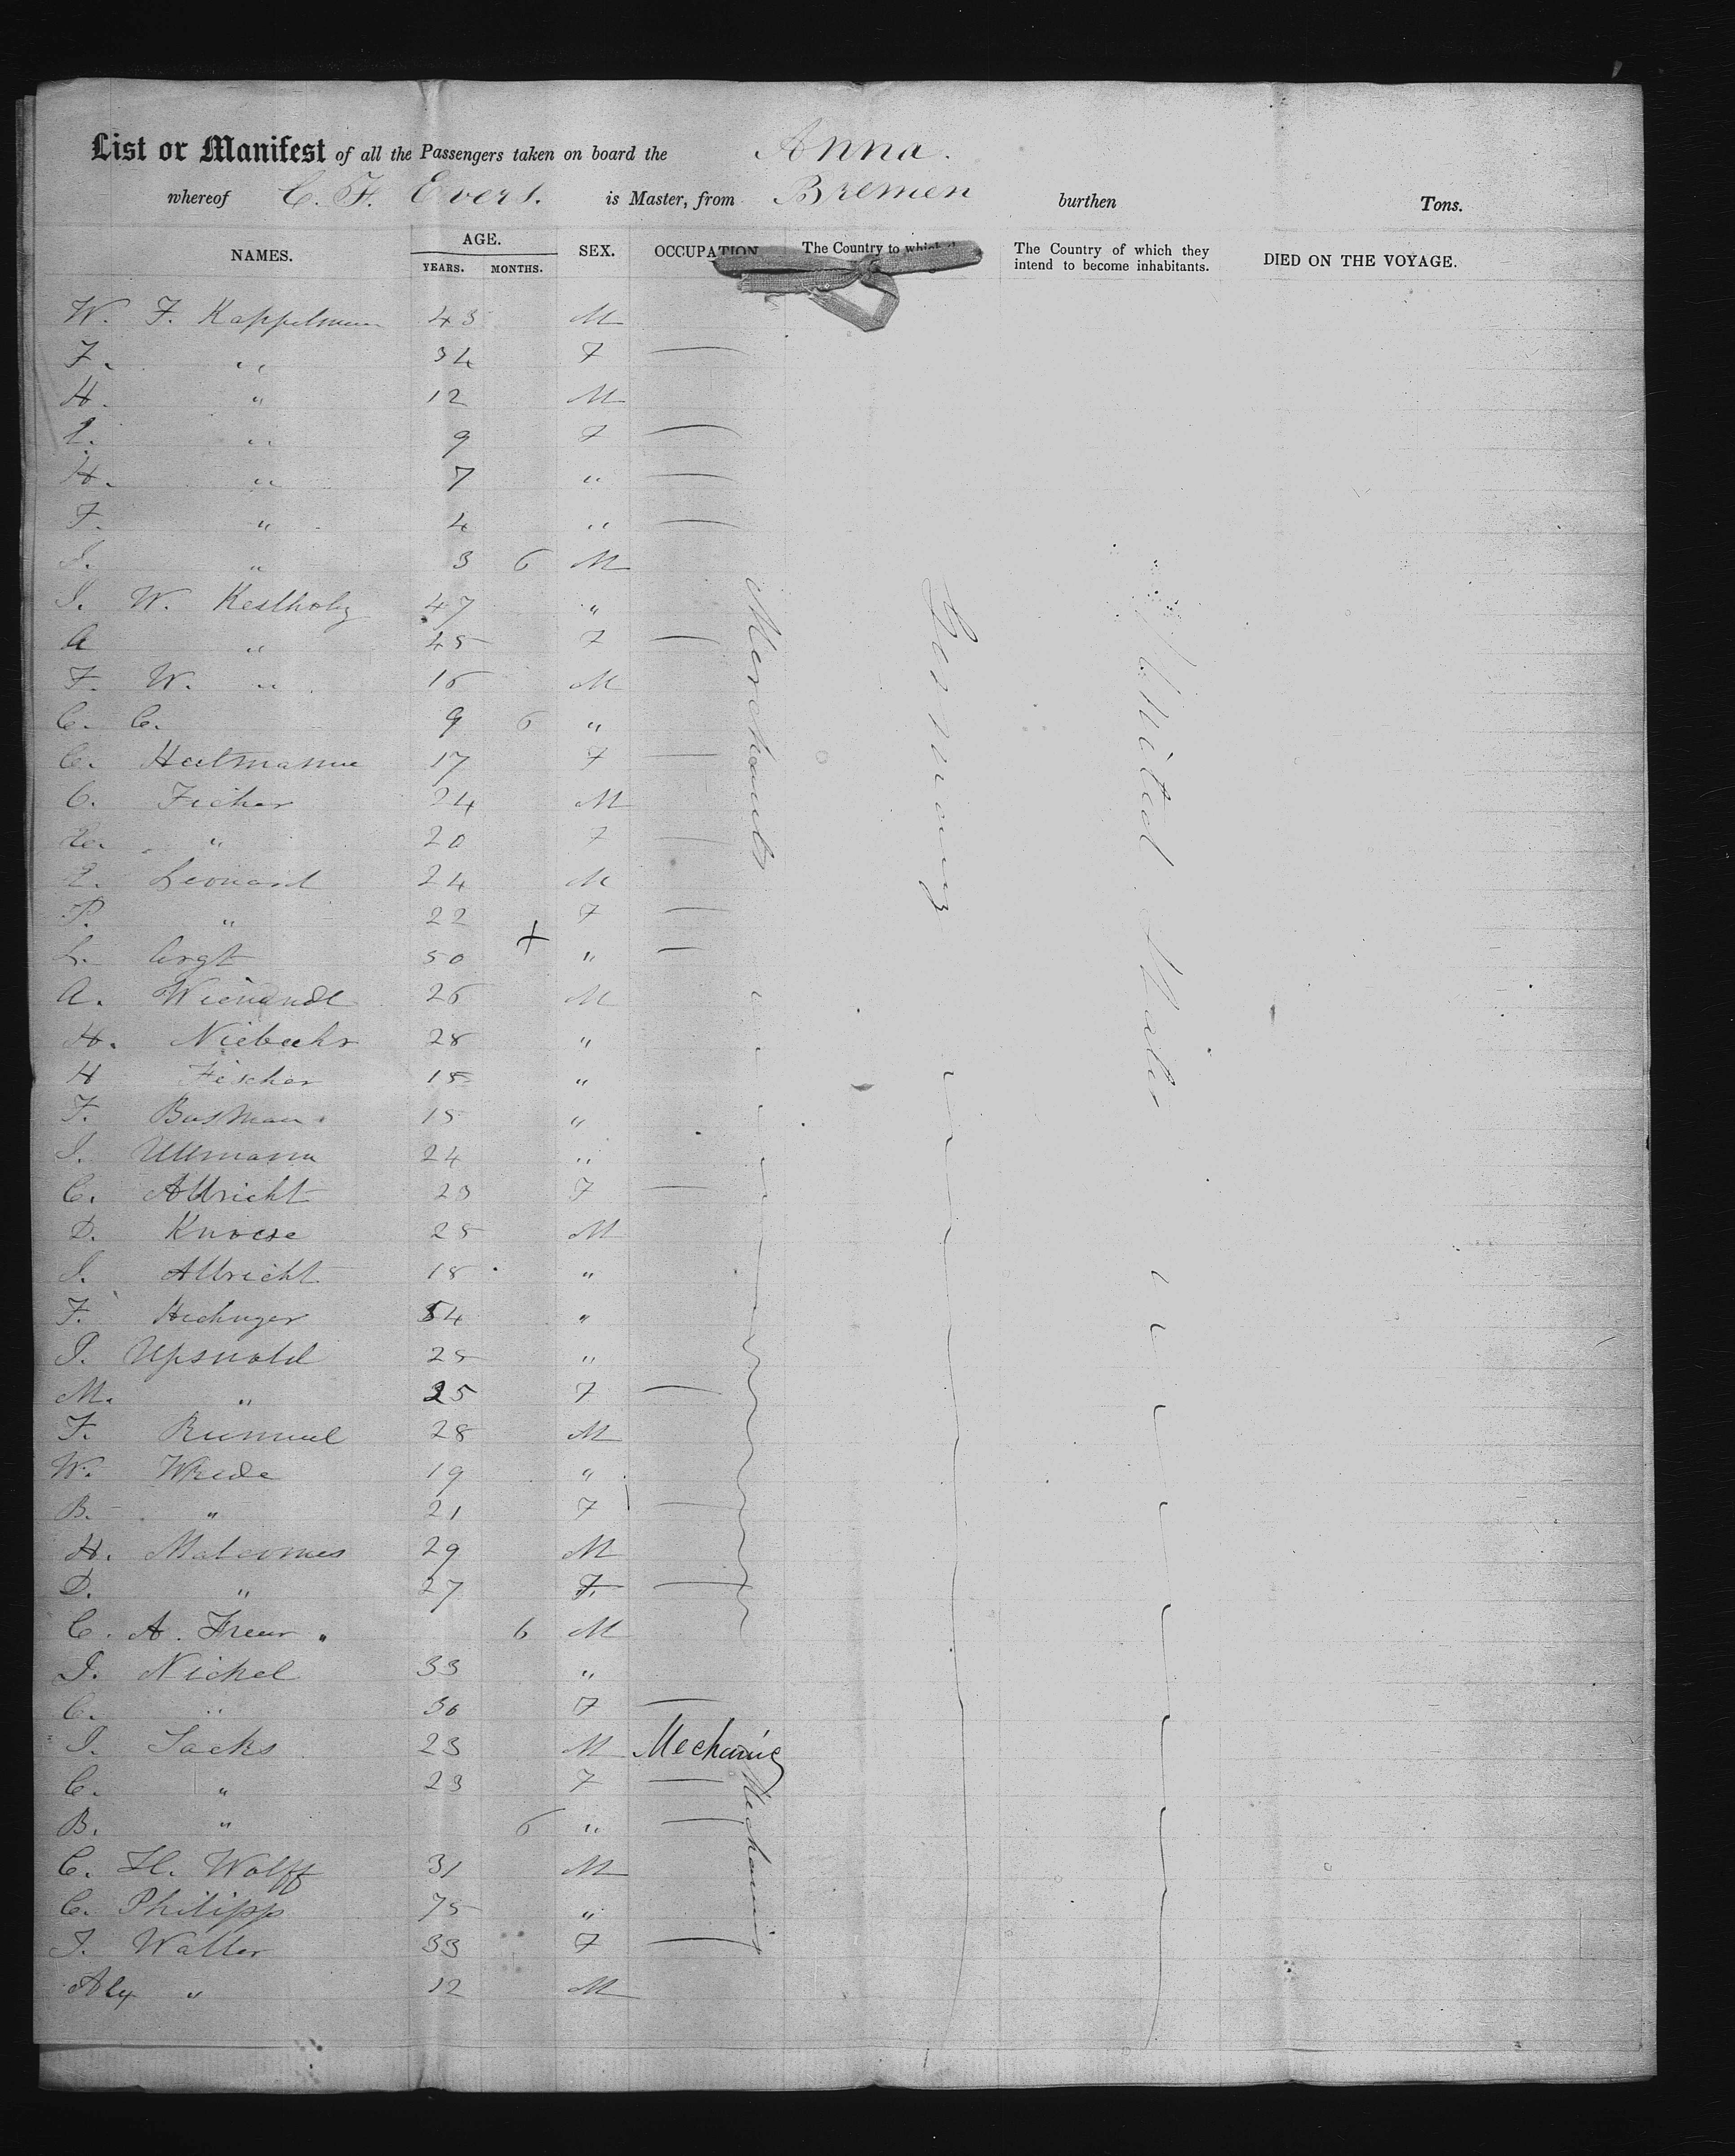 List or Manifest of all the Passengers taken on board the Anna.
whereof C. F. Evers. is Master, from Bremen burthen Tons.
NAMES. AGE. YEARS. MONTHS. SEX. OCCUPATION The Country to which The Country of which they intend to become inhabitants. DIED ON THE VOYAGE.
W. F. Kappelmann 43 M
F. " 34 F —
H. " 12 M
L. " 9 F —
H. " 7 " —
F. " 4 " —
I. " 3 6 M
I. W. Kestholz 47 "
A " 45 F —
F. W. " 16 M
C. C. 9 6 "
C. Heitmann 17 F —
C. Ficher 24 M
" 20 F —
L. Leonard 24 M
P. " 22 F —
L. Argt 50 + " —
A. Wienandt 26 M
H. Niebuhr 28 "
H Fischer 15 "
F. Bosman 15 "
I. Ullmann 24 "
C. Albricht 23 F —
D. Knoese 25 M
I. Albricht 18 "
F. Hechinger 54 "
P. Upsnold 25 "
M. " 25 F —
F. Rummel 28 M
W. Wrede 19 "
B. " 21 F —
H. Malcomes 29 M
D. " 27 F. —
C. A. Freur 6 M
I. Nickel 33 "
C. " 30 F —
I. Sacks 23 M Mechanic
C. " 23 F —
B. " 6 " —
C. H. Wolff 31 M
C. Philipp 75 "
I. Walter 33 F —
Alex " 12 M
Merchants
Germany
United States
Mechanics